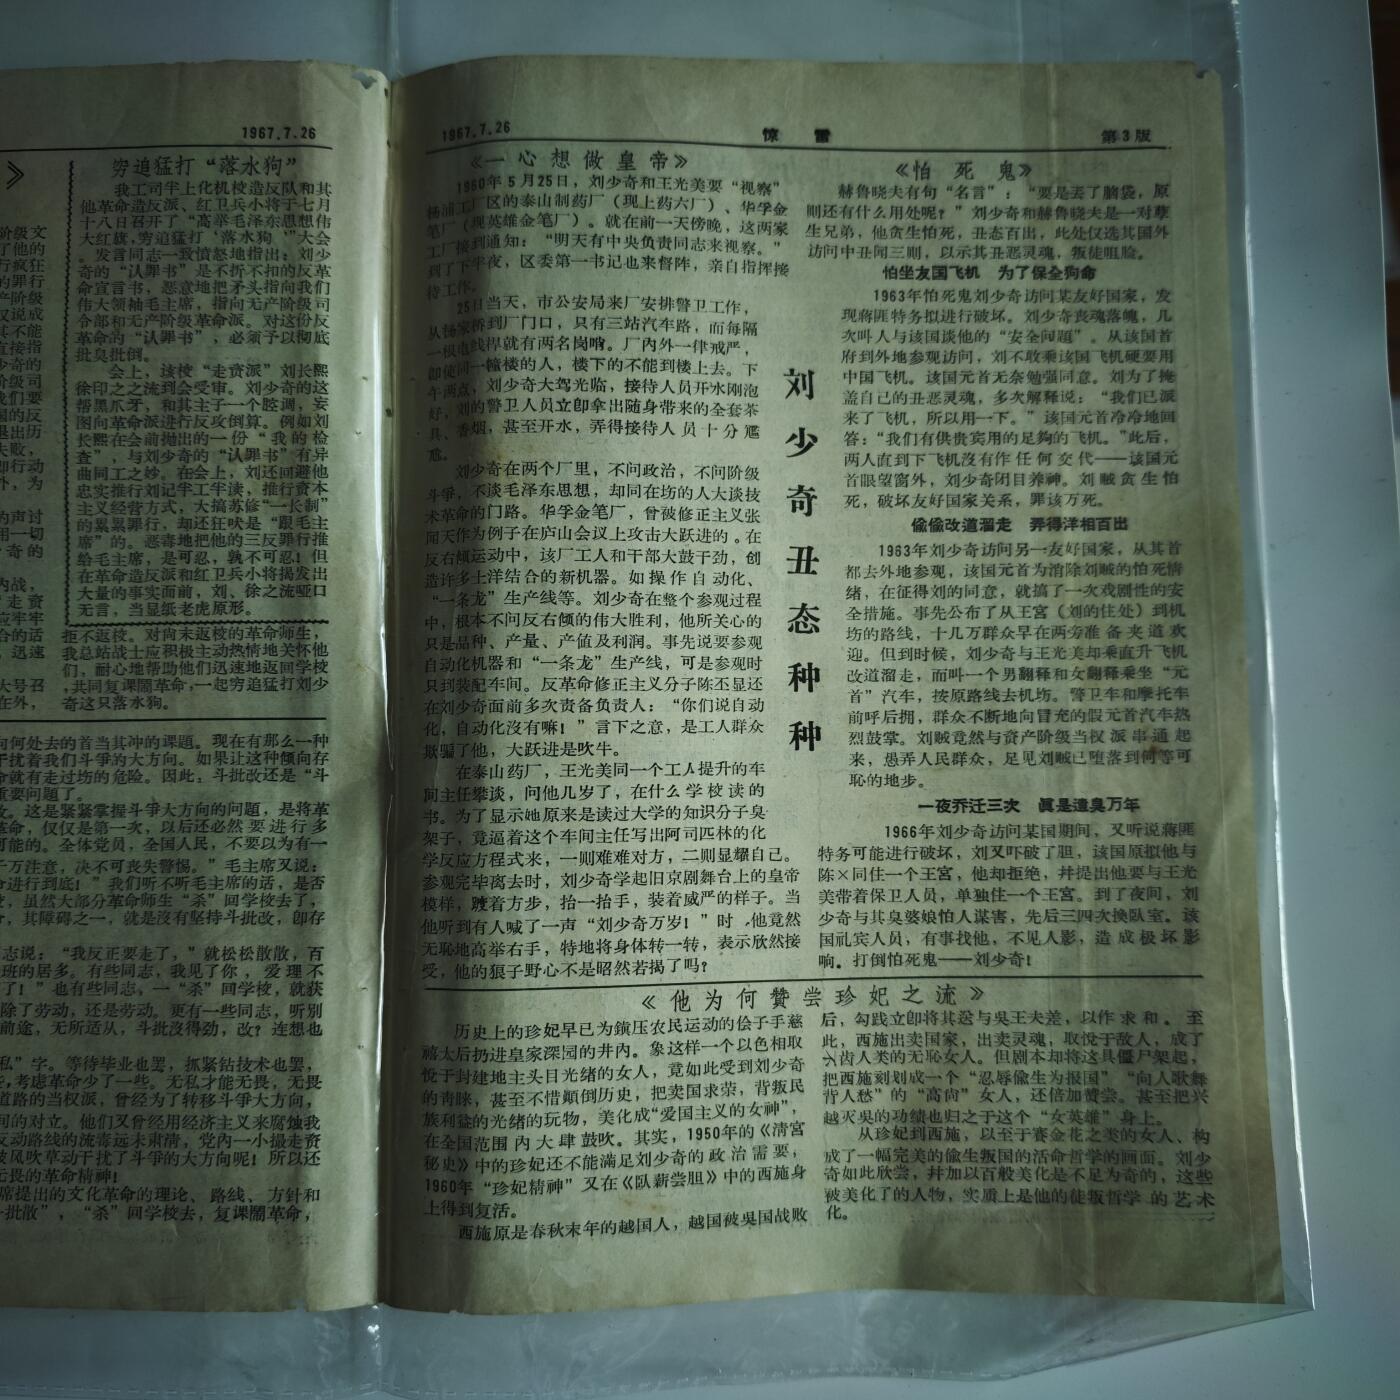 1967.7.26
穷追猛打“落水狗”
我工司半上化机校造反队和其
他革命造反派、红卫兵小将于七月
十八日召开了“高举毛泽东思想伟
大红旗，穷追猛打‘落水狗’”大会
。发言同志一致愤怒地指出：刘少
奇的“认罪书”是不折不扣的反革
命宣言书，恶意地把矛头指向我们
伟大领袖毛主席，指向无产阶级司
令部和无产阶级革命派。对这份反
革命的“认罪书”，必须予以彻底
批臭批倒。
会上，该校“走资派”刘长熙
徐印之之流到会受审。刘少奇的这
帮黑爪牙，和其主子一个腔调，妄
图向革命派进行反攻倒算。例如刘
长熙在会前抛出的一份“我的检
查”，与刘少奇的“认罪书”有异
曲同工之妙。在会上，刘还回避他
忠实推行刘记半工半读，推行资本
主义经营方式，大搞苏修“一长制”
的累累罪行，却还狂吠是“跟毛主
席”的。恶毒地把他的三反罪行推
给毛主席，是可忍，孰不可忍！但
在革命造反派和红卫兵小将揭发出
大量的事实面前，刘、徐之流哑口
无言，当显纸老虎原形。
拒不返校。对尚未返校的革命师生，
我总站战士应积极主动热情地关怀他
们，耐心地帮助他们迅速地返回学校
，共同复课闹革命，一起穷追猛打刘少
奇这只落水狗。
》
阶级文
了他的
行疯狂
的罪行
产阶级
仅说成
其不能
直接指
少奇的
阶级司
我们要
国的反
退出历
失败，
即行动
外，为
的声讨
用一切
少奇的
内战，
“走资
应牢牢
合的话
，迅速
大号召
在外，
向何处去的首当其冲的课题。现在有那么一种
干扰着我们斗争的大方向。如果让这种倾向存
命就有走过场的危险。因此，斗批改还是“斗
重要问题了。
攵。这是紧紧掌握斗争大方向的问题，是将革
革命，仅仅是第一次，以后还必然要进行多
可能的。全体党员，全国人民，不要以为有一
千万注意，决不可丧失警惕。”毛主席又说：
命进行到底！”我们听不听毛主席的话，是否
，虽然大部分革命师生“杀”回学校去了，
，其障碍之一，就是没有坚持斗批改，即存
志说：“我反正要走了，”就松松散散，百
班的居多。有些同志，我见了你，爱理不
了！”也有些同志，一“杀”回学校，就获
除了劳动，还是劳动。更有一些同志，听别
前途，无所适从，斗批没得劲，改？连想也
私”字。等待毕业也罢，抓紧钻技术也罢，
，考虑革命少了一些。无私才能无畏，无畏
道路的当权派，曾经为了转移斗争大方向，
间的对立。他们又曾经用经济主义来腐蚀我
反动路线的流毒远未肃清，党内一小撮走资
被风吹草动干扰了斗争的大方向呢！所以还
无畏的革命精神！
席提出的文化革命的理论、路线、方针和
斗批散”，“杀”回学校去，复课闹革命，
1967.7.26
惊雷
第3版
《一心想做皇帝》
1960年5月25日，刘少奇和王光美要“视察”
杨浦工厂区的泰山制药厂（现上药六厂）、华孚金
笔厂（现英雄金笔厂）。就在前一天傍晚，这两家
工厂接到通知：“明天有中央负责同志来视察。”
到了下半夜，区委第一书记也来督阵，亲自指挥接
待工作。
25日当天，市公安局来厂安排警卫工作，
从杨家桥到厂门口，只有三站汽车路，而每隔
一根电线捍就有两名岗哨。厂内外一律戒严，
即使同一幢楼的人，楼下的不能到楼上去。下
午两点，刘少奇大驾光临，接待人员开水刚泡
好，刘的警卫人员立即拿出随身带来的全套茶
具、香烟，甚至开水，弄得接待人员十分尴
尬。
刘少奇在两个厂里，不问政治，不问阶级
斗争，不谈毛泽东思想，却同在场的人大谈技
术革命的门路。华孚金笔厂，曾被修正主义张
闻天作为例子在庐山会议上攻击大跃进的。在
反右倾运动中，该厂工人和干部大鼓干劲，创
造许多土洋结合的新机器。如操作自动化、
“一条龙”生产线等。刘少奇在整个参观过程
中，根本不问反右倾的伟大胜利，他所关心的
只是品种、产量、产值及利润。事先说要参观
自动化机器和“一条龙”生产线，可是参观时
只到装配车间。反革命修正主义分子陈丕显还
在刘少奇面前多次责备负责人：“你们说自动
化，自动化没有嘛！”言下之意，是工人群众
欺骗了他，大跃进是吹牛。
在泰山药厂，王光美同一个工人提升的车
间主任攀谈，问他几岁了，在什么学校读的
书。为了显示她原来是读过大学的知识分子臭
架子，竟逼着这个车间主任写出阿司匹林的化
学反应方程式来，一则难难对方，二则显耀自己。
参观完毕离去时，刘少奇学起旧京剧舞台上的皇帝
模样，踱着方步，抬一抬手，装着威严的样子。当
他听到有人喊了一声“刘少奇万岁！”时，他竟然
无恥地高举右手，特地将身体转一转，表示欣然接
受，他的狼子野心不是昭然若揭了吗？
刘少奇丑态种种
《怕死鬼》
赫鲁晓夫有句“名言”：“要是丢了脑袋，原
则还有什么用处呢？”刘少奇和赫鲁晓夫是一对孽
生兄弟，他贪生怕死，丑态百出，此处仅选其国外
访问中丑闻三则，以示其丑恶灵魂，叛徒咀脸。
怕坐友国飞机　为了保全狗命
1963年怕死鬼刘少奇访问某友好国家，发
现蒋匪特务拟进行破坏。刘少奇丧魂落魄，几
次叫人与该国谈他的“安全问题”。从该国首
府到外地参观访问，刘不敢乘该国飞机硬要用
中国飞机。该国元首无奈勉强同意。刘为了掩
盖自己的丑恶灵魂，多次解释说：“我们已派
来了飞机，所以用一下。”该国元首冷冷地回
答：“我们有供贵宾用的足夠的飞机。”此后，
两人直到下飞机没有作任何交代——该国元
首眼望窗外，刘少奇闭目养神。刘贼贪生怕
死，破坏友好国家关系，罪该万死。
偷偷改道溜走　弄得洋相百出
1963年刘少奇访问另一友好国家，从其首
都去外地参观，该国元首为消除刘贼的怕死情
绪，在征得刘的同意，就搞了一次戏剧性的安
全措施。事先公布了从王宫（刘的住处）到机
场的路线，十几万群众早在两旁准备夹道欢
迎。但到时候，刘少奇与王光美却乘直升飞机
改道溜走，而叫一个男翻释和女翻释乘坐“元
首”汽车，按原路线去机场。警卫车和摩托车
前呼后拥，群众不断地向冒充的假元首汽车热
烈鼓掌。刘贼竟然与资产阶级当权派串通起
来，愚弄人民群众，足见刘贼已堕落到何等可
恥的地步。
一夜乔迁三次　真是遗臭万年
1966年刘少奇访问某国期间，又听说蒋匪
特务可能进行破坏，刘又吓破了胆，该国原拟他与
陈×同住一个王宫，他却拒绝，并提出他要与王光
美带着保卫人员，单独住一个王宫。到了夜间，刘
少奇与其臭婆娘怕人谋害，先后三四次换臥室。该
国礼宾人员，有事找他，不见人影，造成极坏影
响。打倒怕死鬼——刘少奇！
《他为何赞尝珍妃之流》
历史上的珍妃早已为镇压农民运动的侩子手慈
禧太后扔进皇家深园的井內。象这样一个以色相取
悅于封建地主头目光绪的女人，竟如此受到刘少奇
的青睐，甚至不惜颠倒历史，把卖国求荣，背叛民
族利益的光绪的玩物，美化成“爱国主义的女神”，
在全国范围內大肆鼓吹。其实，1950年的《清宫
秘史》中的珍妃还不能满足刘少奇的政治需要，
1960年“珍妃精神”又在《臥薪尝胆》中的西施身
上得到复活。
西施原是春秋末年的越国人，越国被吳国战败
后，勾践立即将其送与吳王夫差，以作求和。至
此，西施出卖国家，出卖灵魂，取悅于敌人，成了
齿人类的无恥女人。但剧本却将这具僵尸架起，
把西施刻划成一个“忍辱偸生为报国”“向人歌舞
背人愁”的“高尙”女人，还倍加赞尝。甚至把兴
越灭吳的功绩也归之于这个“女英雄”身上。
从珍妃到西施，以至于赛金花之类的女人、构
成了一幅完美的偸生叛国的活命哲学的画面。刘少
奇如此欣尝，并加以百般美化是不足为奇的，这些
被美化了的人物，实质上是他的徒叛哲学的艺术
化。